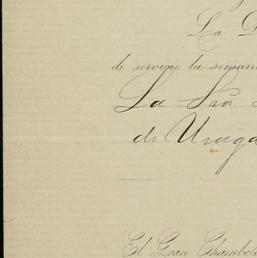 La
de servicio la seman
La Sra
de Uraga
El Gran Chambel